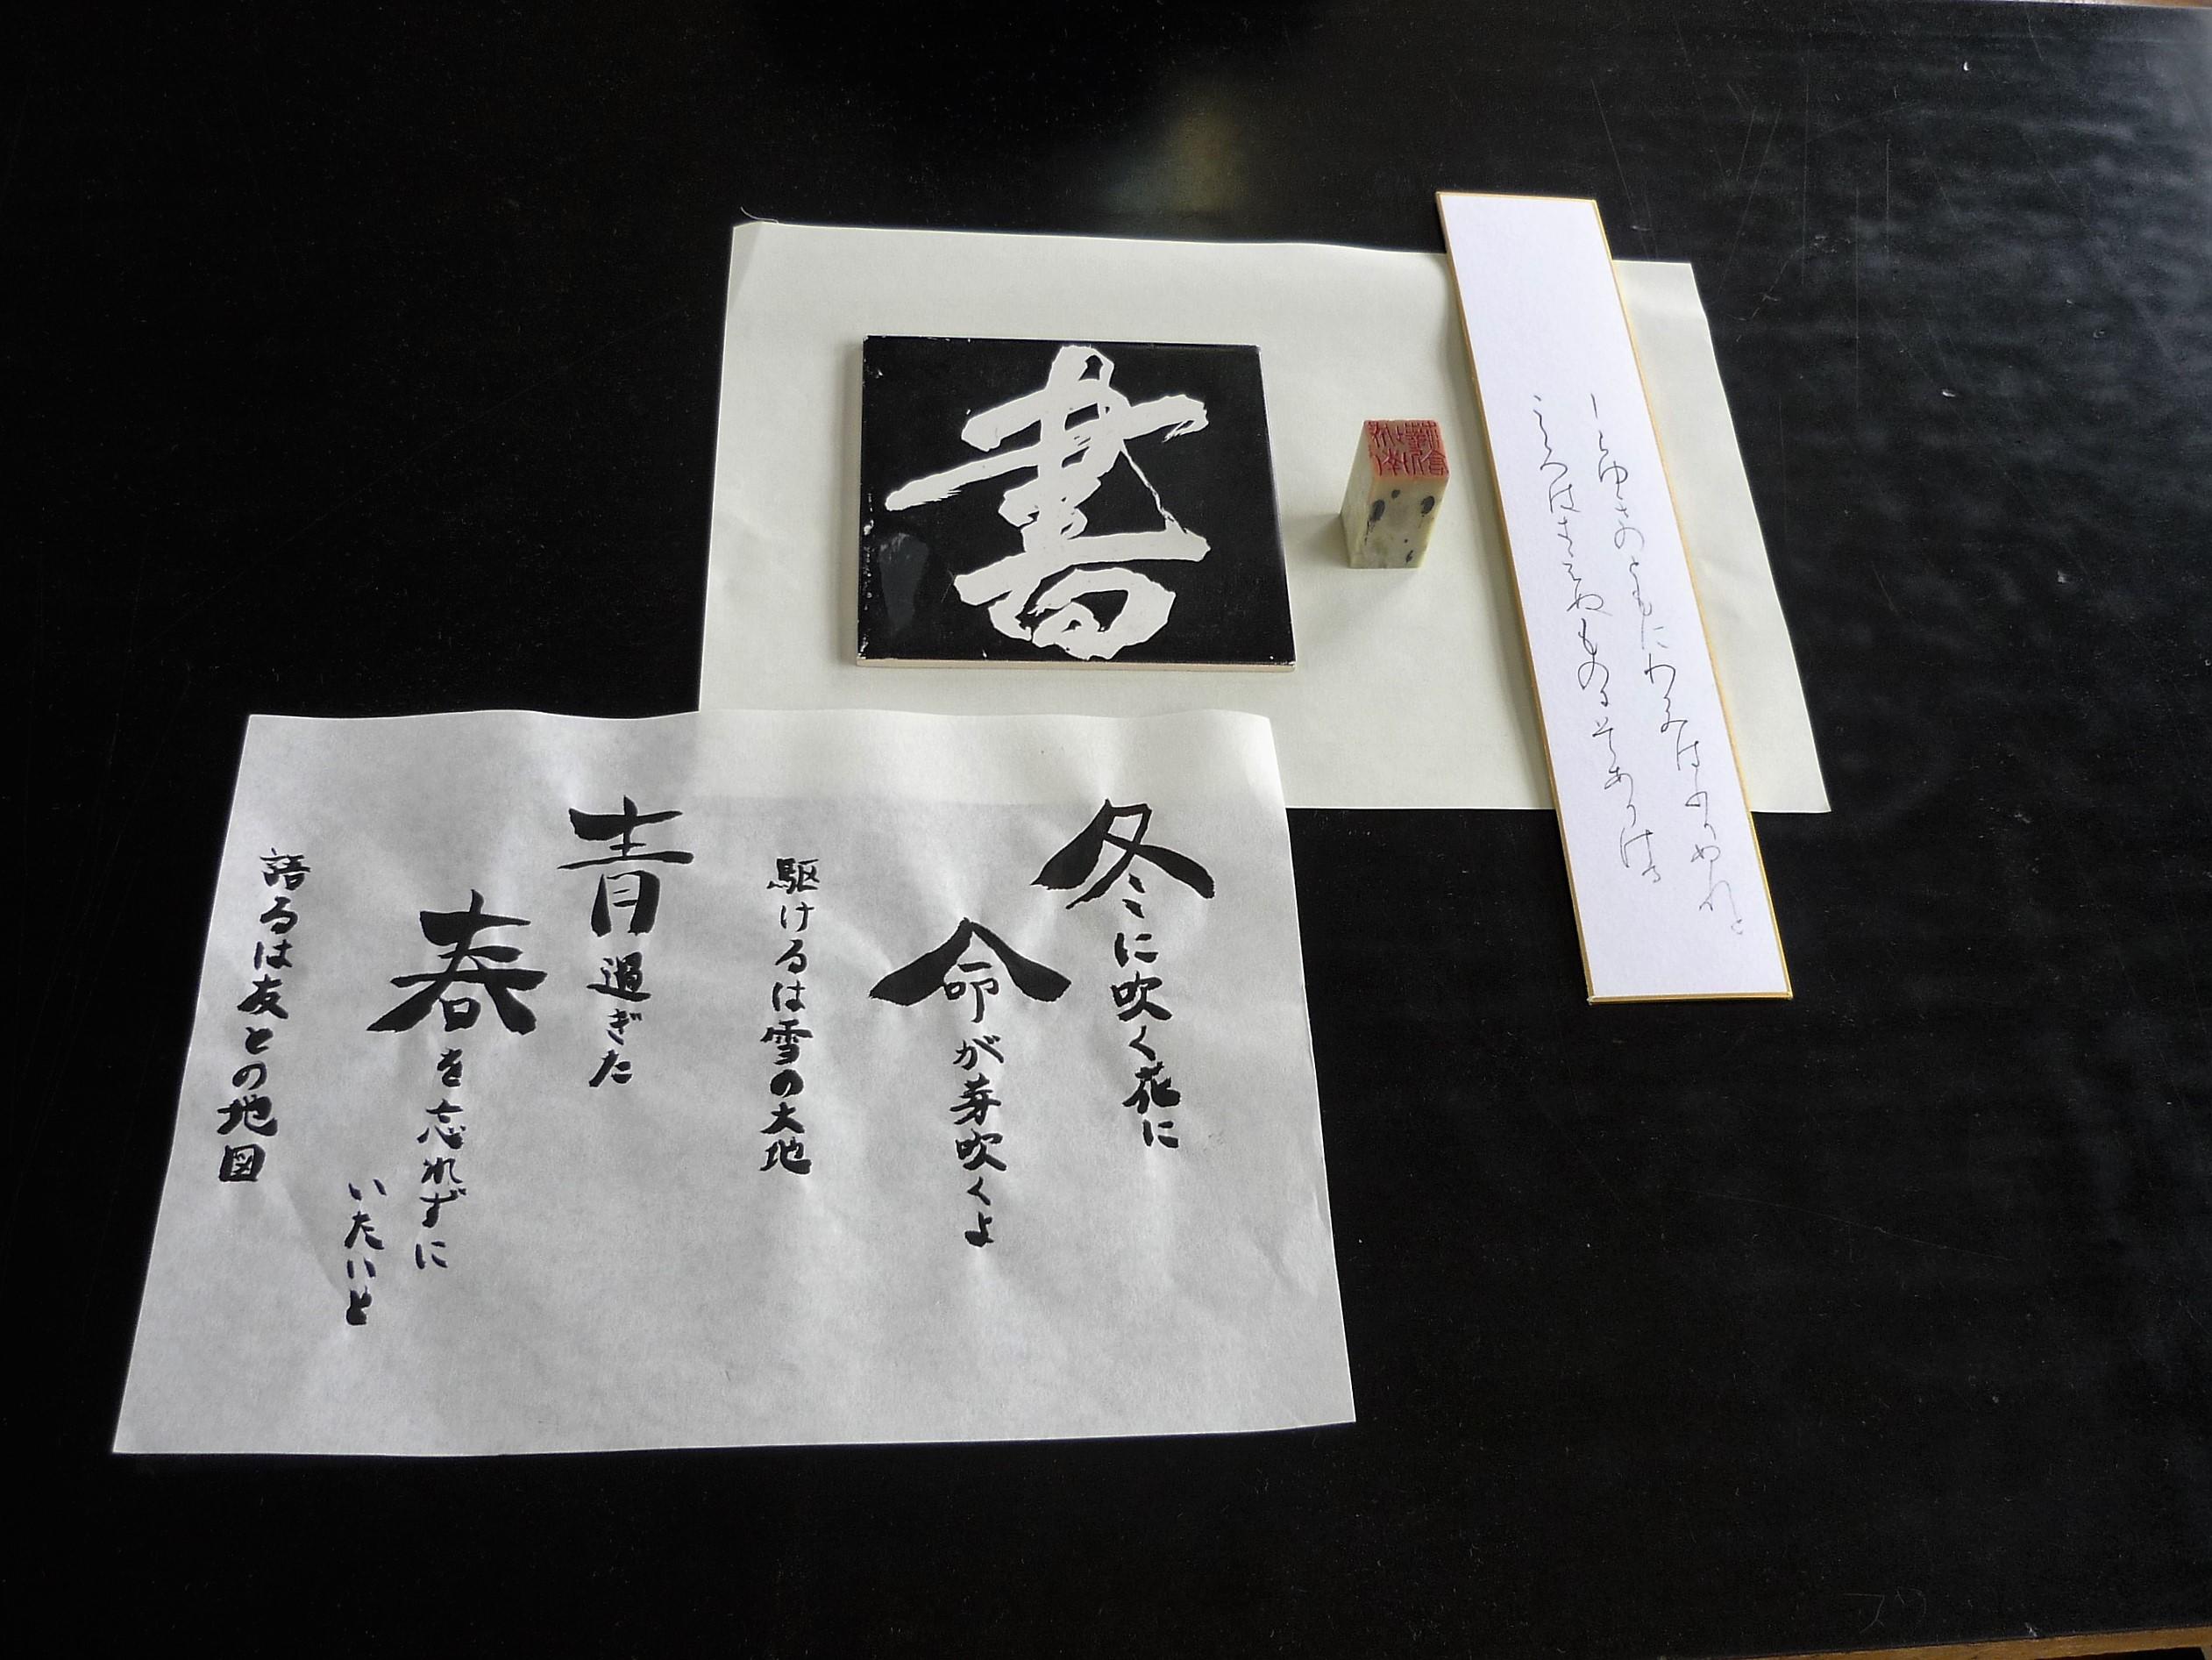 書
しらゆきのともにわかみはふりぬれと
こころはきえぬものにそありける
冬に吹く花に
命が芽吹くよ
駆けるは雪の大地
青過ぎた
春を忘れずに
いたいと
語るは友との地図